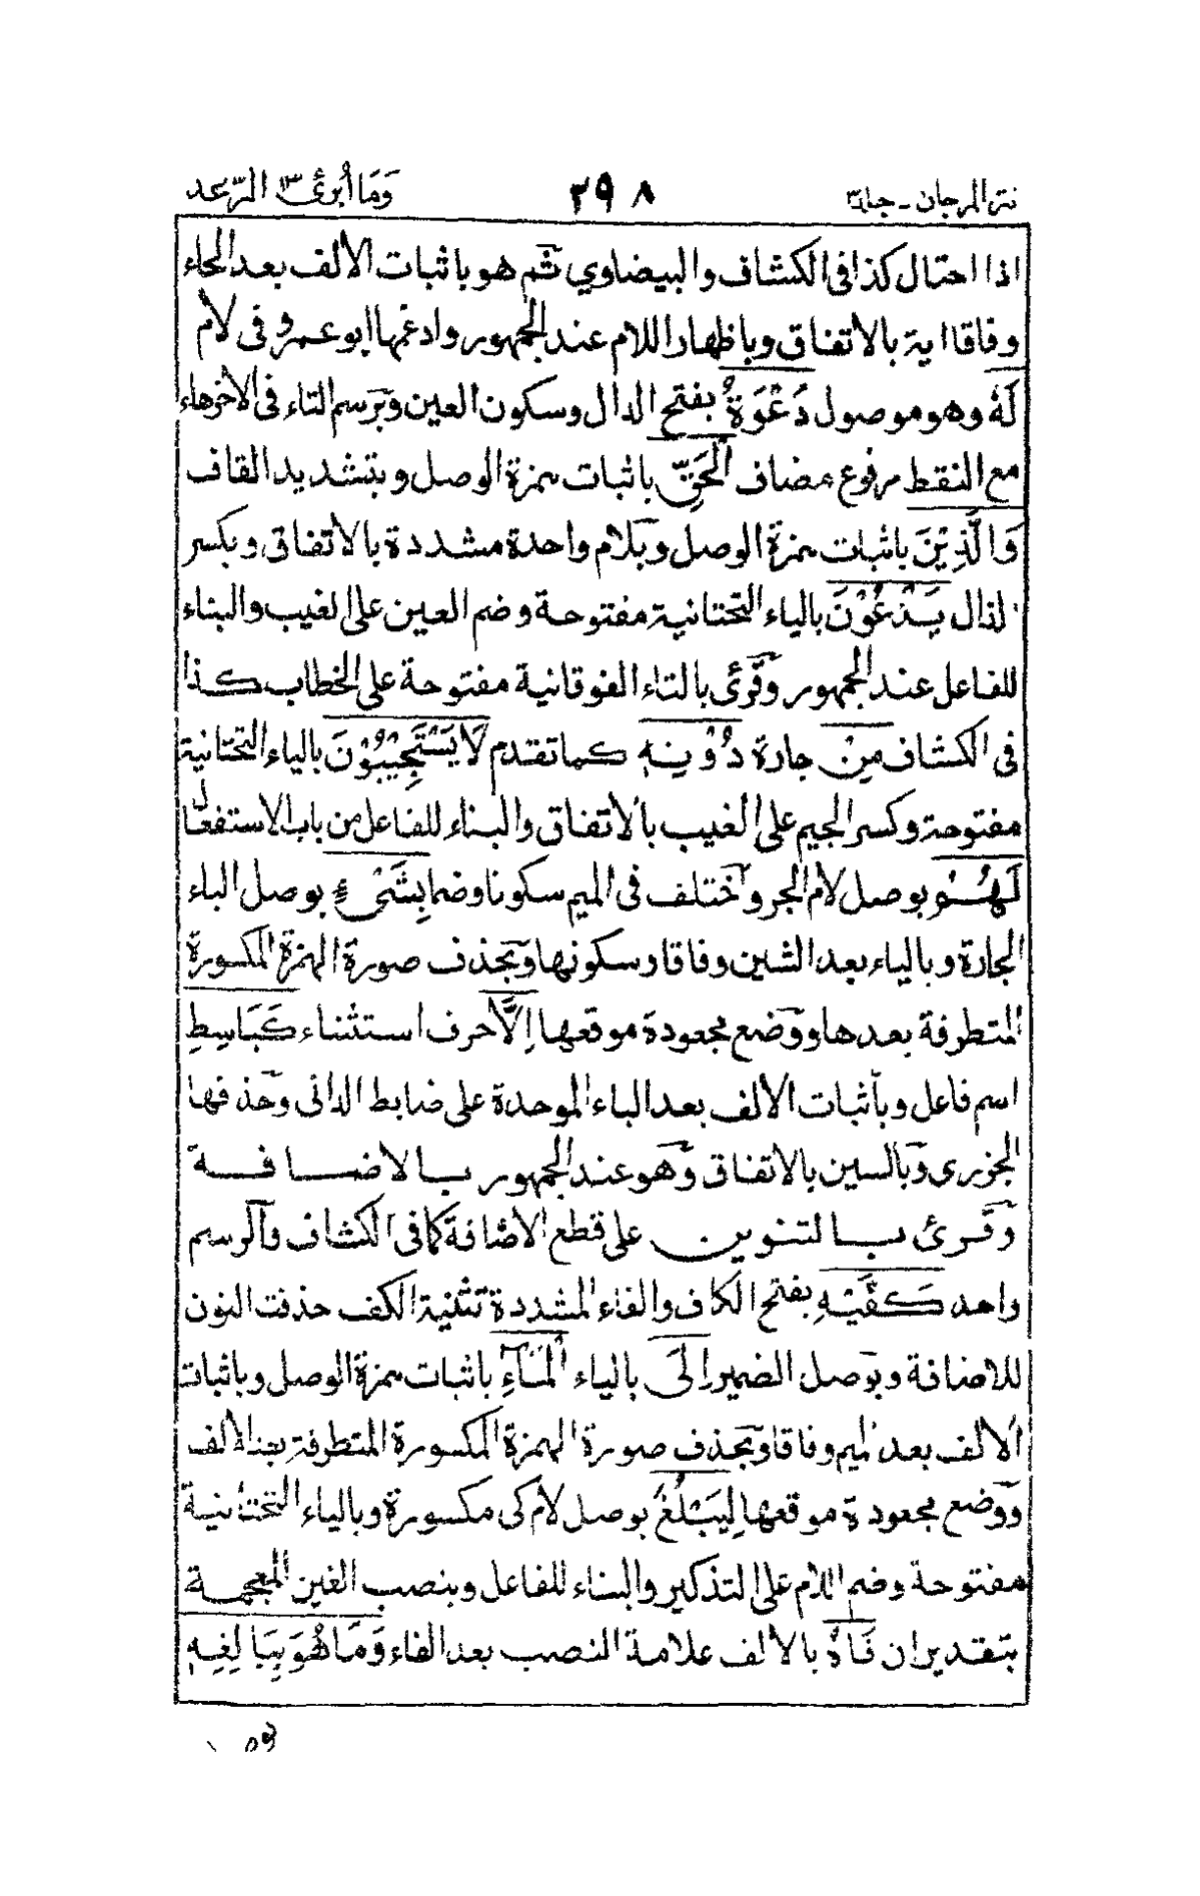 نثر المرجان - جلد٣ ٣٩٨ وَمَا أُبَرِّئُ ١٣ الرّعد
اذا احتال كذا فى الكشاف والبيضاوي ثم هو باثبات الالف بعد الحاء
وفاقا اية بالاتفاق وباظهار اللام عند الجمهور وادغمها ابو عمرو فى لام
لَهُ وهو موصول دَعْوَةُ بفتح الدال وسكون العين وبرسم التاء فى الاخر هاء
مع النقط مرفوع مضاف الْحَقِّ باثبات همزة الوصل وبتشديد القاف
وَالَّذِيْنَ باثبات همزة الوصل وبلام واحدة مشددة بالاتفاق وبكسر
الذال يَدْعُوْنَ بالياء التحتانية مفتوحة وضم العين على الغيب والبناء
للفاعل عند الجمهور وقرئ بالتاء الفوقانية مفتوحة على الخطاب كذا
فى الكشاف مِنْ جارة دُوْنِهٖ كما تقدم لَا يَسْتَجِيْبُوْنَ بالياء التحتانية
مفتوحة وكسر الجيم على الغيب بالاتفاق والبناء للفاعل من باب الاستفعال
لَهُمْ بوصل لام الجر واختلف فى الميم سكونا وضما بِشَىْءٍ بوصل الباء
الجارة وبالياء بعد الشين وفاقا وسكونها وبحذف صورة الهمزة المكسورة
المتطرفة بعدها ووضع مجعودة موقعها اِلَّا حرف استثناء كَبَاسِطِ
اسم فاعل وباثبات الالف بعد الباء الموحدة على ضابط الدانى وحذفها
الجزرى وبالسين بالاتفاق وهو عند الجمهور بالاضافة
وقرئ بالتنوين على قطع الاضافة كما فى الكشاف والرسم
واحد كَفَّيْهِ بفتح الكاف والفاء المشددة تثنية الكف حذفت النون
للاضافة وبوصل الضمير اِلَى بالياء الْمَآءِ باثبات همزة الوصل وباثبات
الالف بعد الميم وفاقا وبحذف صورة الهمزة المكسورة المتطرفة بعد الالف
ووضع مجعودة موقعها لِيَبْلُغَ بوصل لام كى مكسورة وبالياء التحتانية
مفتوحة وضم اللام على التذكير والبناء للفاعل وبنصب الغين المعجمة
بتقدير ان فَاهُ بالالف علامة النصب بعد الفاء وَمَا هُوَ بِبَالِغِهٖ